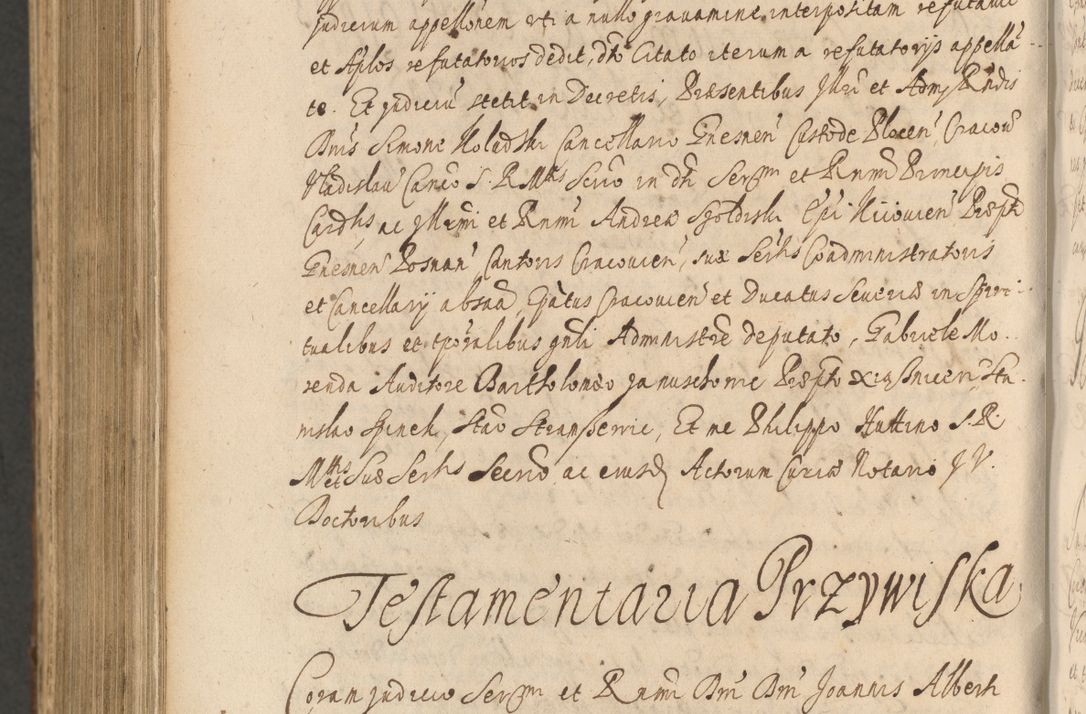 judicium appellõnem uti a nullo gravamine interpositam refutavit
et Aplõs refutatorios dedit, dto Citato iterum a refutatorijs appellã
te. Et judiciũ stetit in Decretis, Præsentibus Illri et Admj Rndis
Dnis Simone Koludski Cancellario Gnesnen Custode Plocen Cracou
Vladislau Canco S. R. Mttis Secrio in dti Sermi et Rnmi Principis
Cardlis ac Illrmi et Rnmi Andreæ Szoldrski Epi Kiiouien Præpto
Gnesnen Posnan Cantoris Cracouien, suæ Serttis Coadministratoris
et Cancellarij absna Epatus Cracouien et Ducatus Seueriæ in Spiri-
tualibus et tporalibus gnli Administre deputato, Gabriele Mo-
renda Auditore Bartholomæo Januschowic Præpto Xiaßnicen Sta-
nislao Spinek, Stao Stranßewic, Et me Philippo Huttino S. R.
Mttis et Suæ Serttis Secrio ac eiusd Actorum Curiæ Notario J V.
Doctoribus
Testamentaria Przywiska
Coram judicio Sermi et Rnmi Dni Dni Joannis Alberti